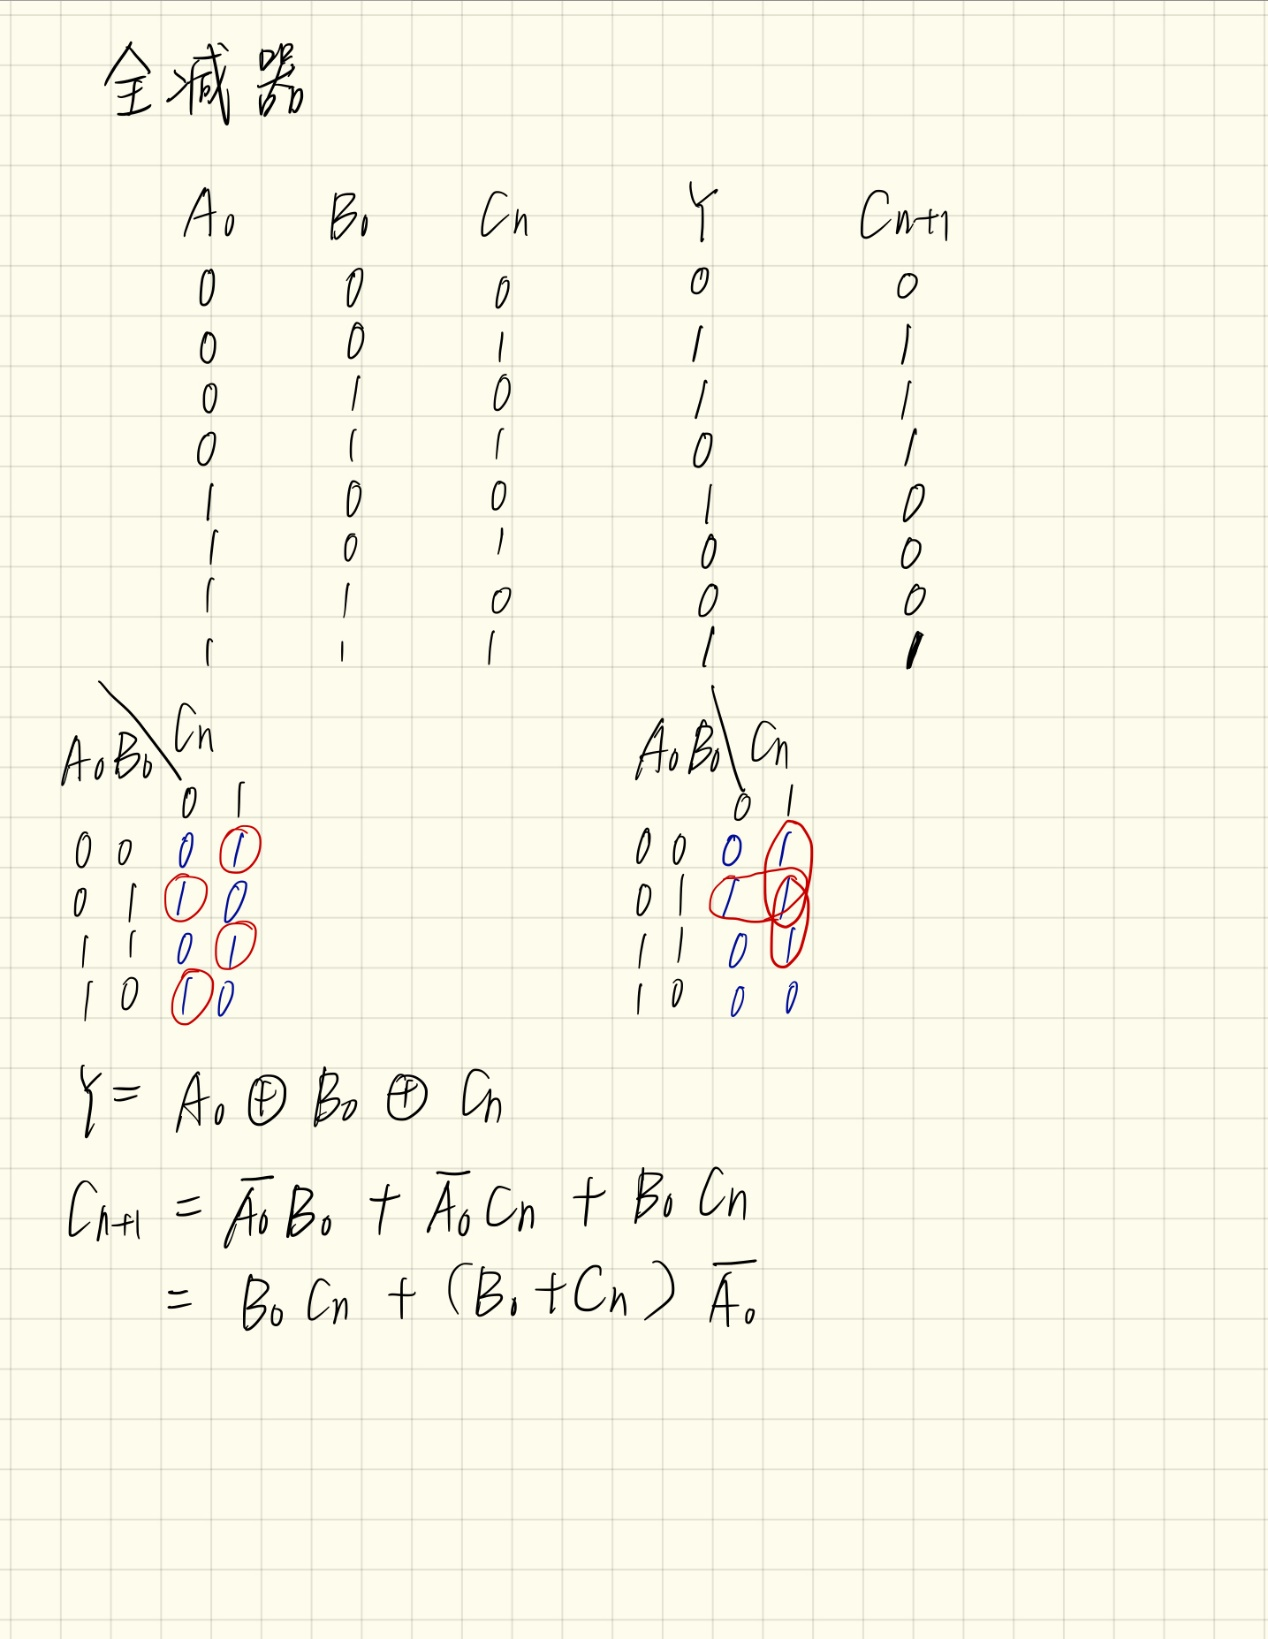 全减器
A₀ B₀ Cn Y Cn+1
0 0 0 0 0
0 0 1 1 1
0 1 0 1 1
0 1 1 0 1
1 0 0 1 0
1 0 1 0 0
1 1 0 0 0
1 1 1 1 1
A₀B₀ \ Cn
0 1
0 0 0 1
0 1 1 0
1 1 0 1
1 0 1 0
A₀B₀ \ Cn
0 1
0 0 0 1
0 1 1 1
1 1 0 1
1 0 0 0
Y = A₀ ⊕ B₀ ⊕ Cn
Cn+1 = A̅₀B₀ + A̅₀Cn + B₀Cn
= B₀Cn + (B₀+Cn) A̅₀